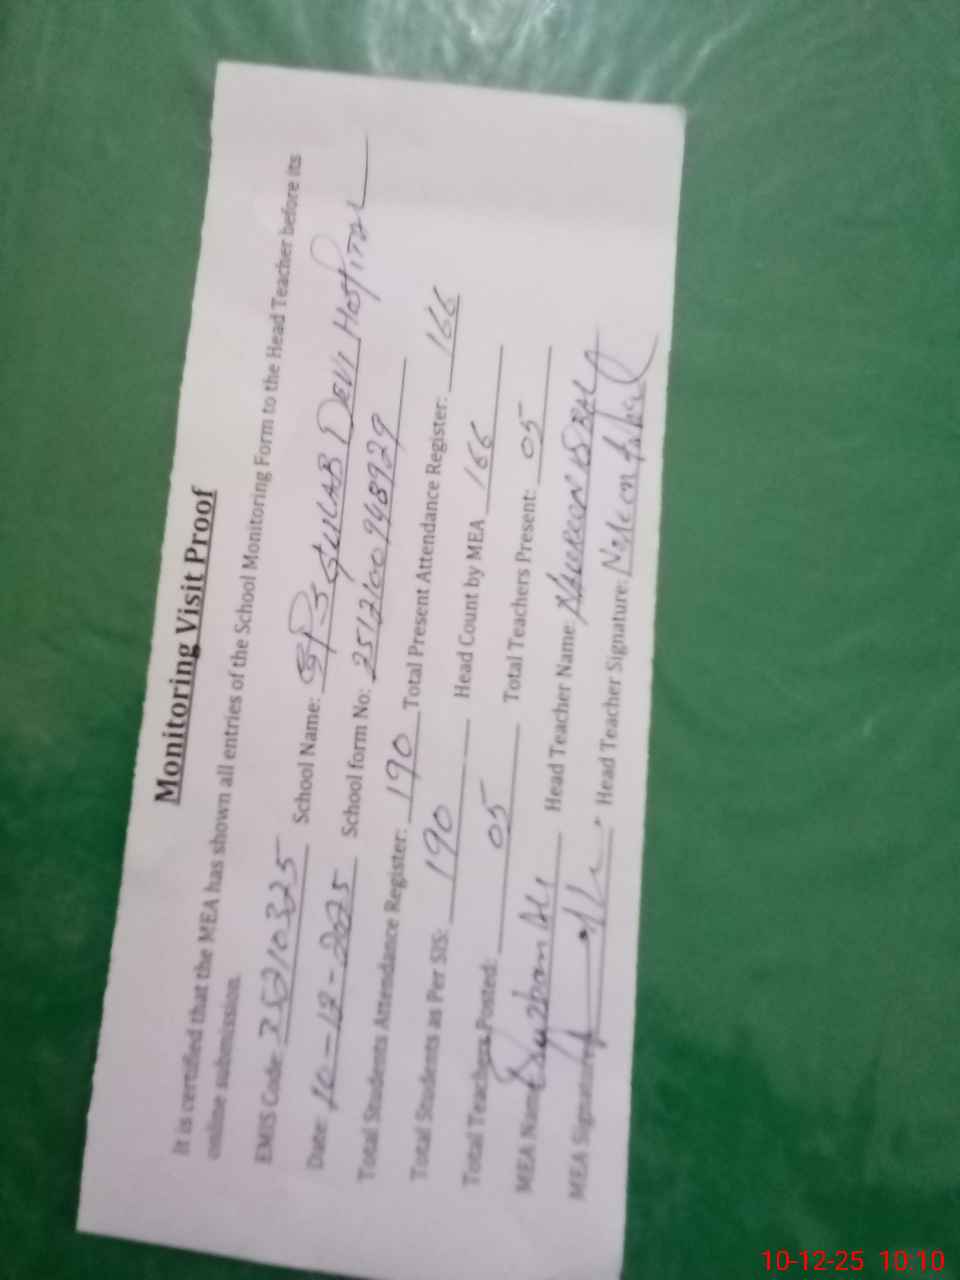 Monitoring Visit Proof
It is certified that the MEA has shown all entries of the School Monitoring Form to the Head Teacher before its
online submission.
EMIS Code: 35210325 School Name: GPS GULAB DEVI HOSPITAL
Date: 10-12-2025 School form No:
Total Students Attendance Register: 190 Total Present Attendance Register: 166
Total Students as Per SIS: 190 Head Count by MEA 166
Total Teachers Posted: 05 Total Teachers Present: 05
MEA Name Head Teacher Name:
MEA Signature Head Teacher Signature:
10-12-25 10:10